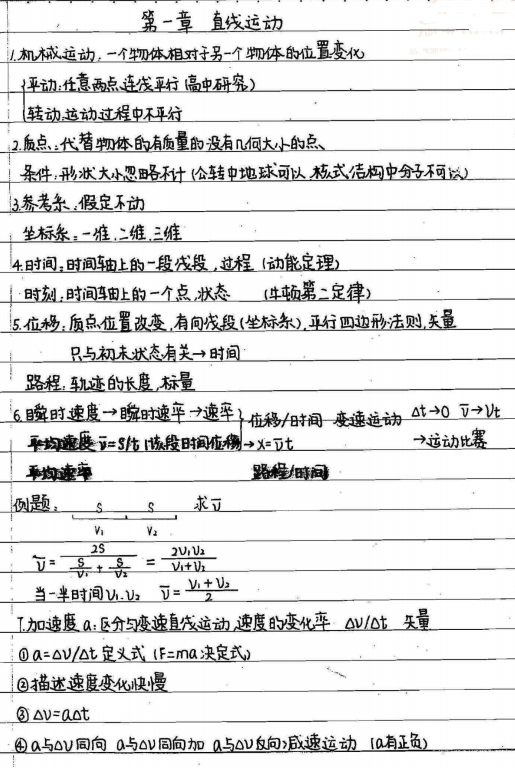 第一章 直线运动
1.机械运动:一个物体相对于另一个物体的位置变化
{平动:任意两点连线平行(高中研究)
转动:运动过程中不平行
2.质点:代替物体的有质量的没有几何大小的点、
条件:形状大小忽略不计(公转中地球可以,核式结构中分子不可以)
3.参考系:假定不动
坐标系:一维.二维.三维
4.时间:时间轴上的一段线段,过程(动能定理)
时刻:时间轴上的一个点,状态 (牛顿第二定律)
5.位移:质点位置改变,有向线段(坐标系),平行四边形法则,矢量
只与初末状态有关→时间
路程:轨迹的长度,标量
6.瞬时速度→瞬时速率→速率} 位移/时间 变速运动 Δt→0 v̅→Vt
平均速度 v̅=S/t (该段时间位移)→x=v̅t →运动比赛
平均速率 路程/时间
例题: S S 求v̅
V₁ V₂
v̅=2S/(S/V₁+S/V₂)=2V₁V₂/(V₁+V₂)
当一半时间V₁.V₂ v̅=(V₁+V₂)/2
7.加速度a:区分与变速直线运动,速度的变化率 ΔV/Δt 矢量
①a=ΔV/Δt 定义式(F=ma决定式)
②描述速度变化快慢
③ΔV=aΔt
④a与ΔV同向 a与ΔV同向加 a与ΔV反向)减速运动 (a有正负)